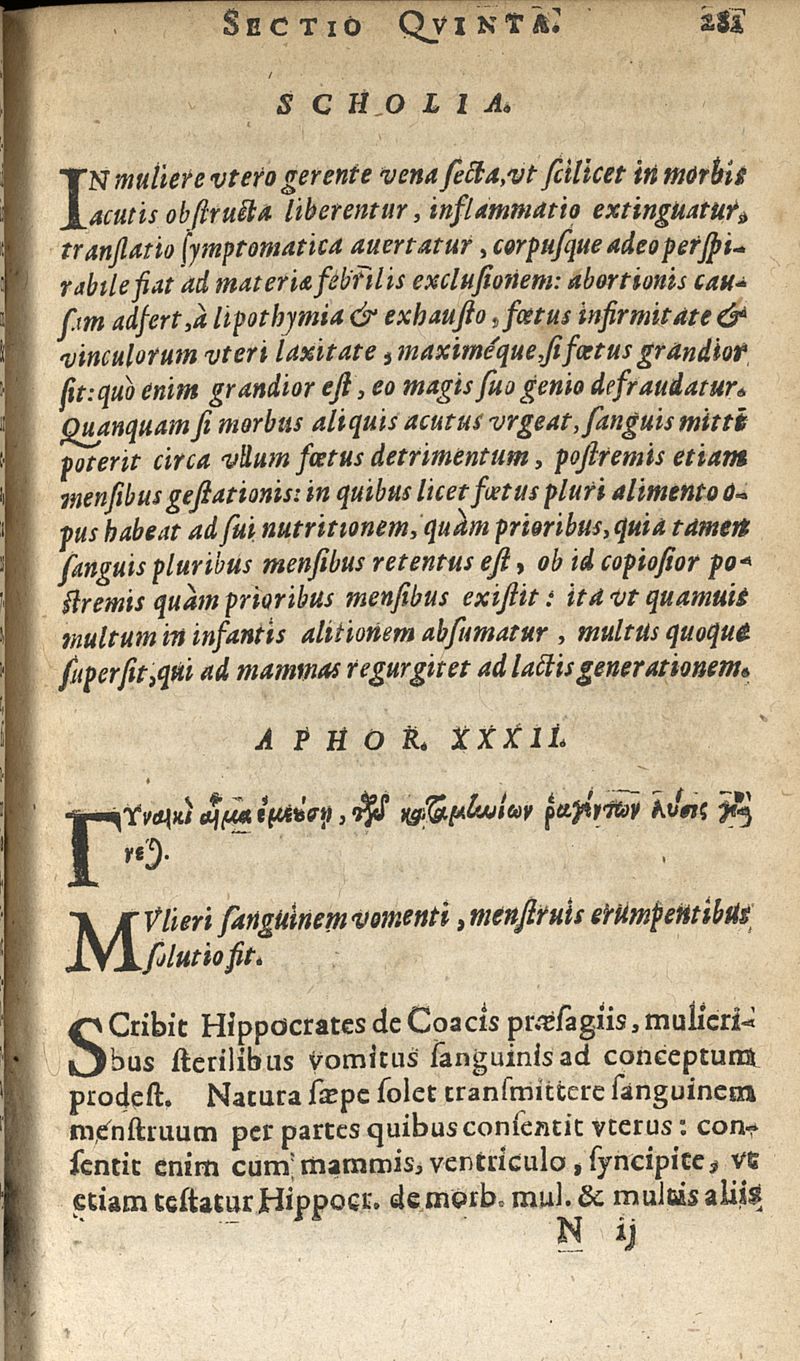 SECTIO QVINTA. 281
SCHOLIA.
IN muliere vtero gerente vena secta, vt scilicet in morbis
acutis obstructa liberentur, inflammatio extinguatur,
translatio symptomatica auertatur, corpusque adeo perspi-
rabile fiat ad materiæ febrilis exclusionem: abortionis cau-
sam adfert, à lipothymia & exhausto, fœtus infirmitate &
vinculorum vteri laxitate, maximéque, si fœtus grandior
sit: quò enim grandior est, eo magis suo genio defraudatur.
Quanquam si morbus aliquis acutus vrgeat, sanguis mitti
poterit circa vllum fœtus detrimentum, postremis etiam
mensibus gestationis: in quibus licet fœtus pluri alimento o-
pus habeat ad sui nutritionem, quàm prioribus, quia tamen
sanguis pluribus mensibus retentus est, ob id copiosior po-
stremis quàm prioribus mensibus existit: ita vt quamuis
multum in infantis alitionem absumatur, multus quoque
supersit, qui ad mammas regurgitet ad lactis generationem.
APHOR. XXXII.
ΓΥναικὶ αἷμα ἐμεούσῃ, τῶν καταμηνίων ῥαγέντων λύσις γί-
νεται.
MVlieri sanguinem vomenti, menstruis erumpentibus
solutio fit.
SCribit Hippocrates de Coacis præsagiis, mulieri-
bus sterilibus vomitus sanguinis ad conceptum
prodest. Natura sæpe solet transmittere sanguinem
menstruum per partes quibus consentit vterus: con-
sentit enim cum mammis, ventriculo, syncipite, vt
etiam testatur Hippocr. de morb. mul. & multis aliis
N ij